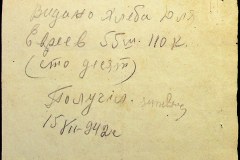 Видано хлеба для
Евреев 55 ш. 110 к.
(сто десят)
Получил.
15/VII-942г